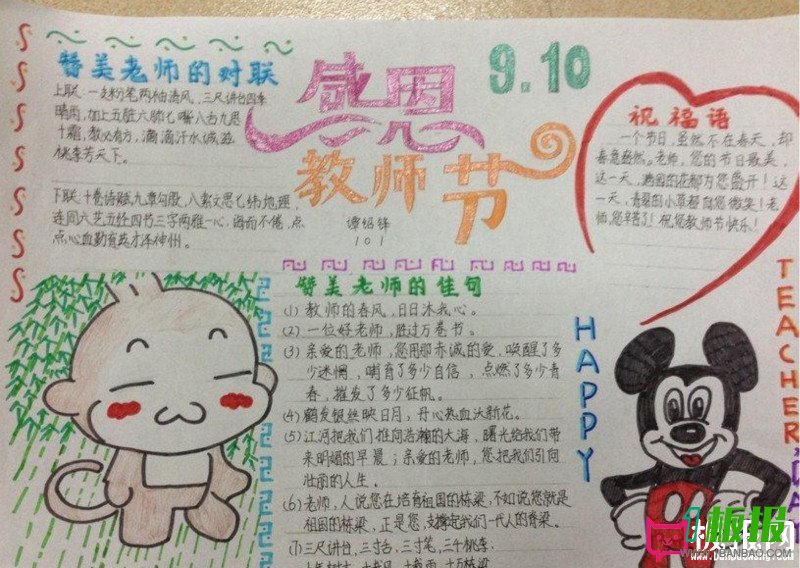 赞美老师的对联
上联：一支粉笔两袖清风，三尺讲台四季
晴雨，加上五脏六肺七嘴八舌九思
十霜，教必有方，滴滴汗水诚滋
桃李芳天下。
下联：十卷诗赋九章勾股，八索文思七纬地理
连同六艺五经四书三字两雅一心，诲而不倦，点
点心血勤育英才泽神州。
感恩
教师节
谭绍锋
101
9.10
祝福语
一个节日，虽然不在春天，却
春意盎然。老师，您的节日最美，
这一天，
花都为您盛开！这
一天，青翠的小草都向您微笑！老
师，您辛苦了！祝您教师节快乐！
赞美老师的佳句
(1) 教师的春风，日日沐我心。
(2) 一位好老师，胜过万卷书。
(3) 亲爱的老师，您用那赤诚的爱，唤醒了多
少迷惘，哺育了多少自信，点燃了多少青
春，摧发了多少征帆。
(4) 鹤发银丝映日月，丹心热血沃新花。
(5) 江河把我们推向浩瀚的大海，曙光给我们带
来明媚的早晨；亲爱的老师，您把我们引向
壮丽的人生。
(6) 老师，人说您在培育祖国的栋梁，不如说您就是
祖国的栋梁，正是您，支撑起我们一代人的脊梁。
(7) 三尺讲台，三寸舌，三寸笔，三千桃李；
十年树木，十载风，十载雨，十万栋梁
HAPPY
TEACHER
板报
www.1banbao.com